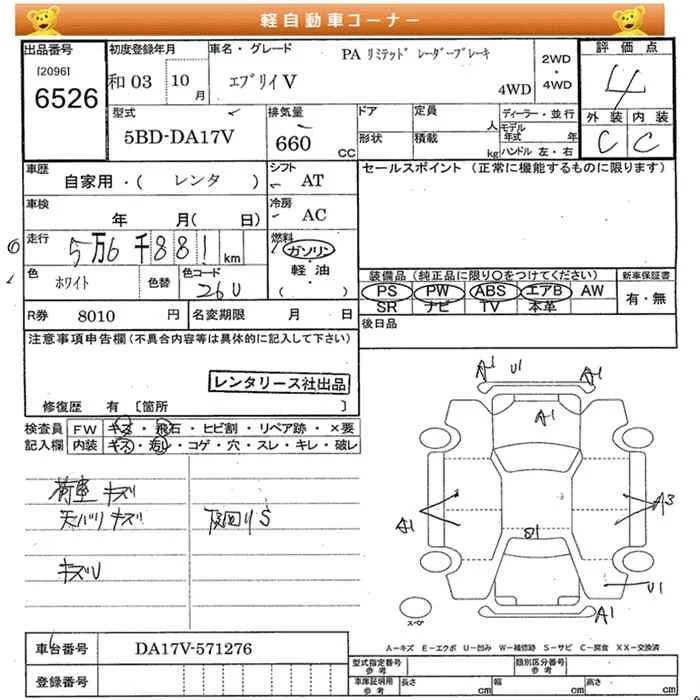 軽自動車コーナー
出品番号 初度登録年月 車名・グレード PA リミテッド レーダーブレーキ 2WD・4WD 評価点
[2096] 6526 和 03 10月 エブリイV 4WD 4
型式 排気量 ドア 定員 人 ディーラー・並行 外装 内装
5BD-DA17V 660 CC 形状 積載 kg モデル年式 年 ハンドル 左・右 C C
車歴 シフト セールスポイント (正常に機能するものに限ります)
自家用・( レンタ ) AT
車検 年 月( 日) 冷房 AC
走行 5万6千881 km 燃料 ガソリン・軽油・( )
色 ホワイト 色替 色コード 26U
装備品 (純正品に限り○をつけてください) 新車保証書
PS PW ABS エアB AW 有・無
SR ナビ TV 本革
R券 8010 円 名変期限 月 日 後日品
注意事項申告欄 (不具合内容等は具体的に記入して下さい)
レンタリース社出品
修復歴 有 [箇所 ]
検査員 FW キズ・飛石・ヒビ割・リペア跡・×要
記入欄 内装 キズ・汚レ・コゲ・穴・スレ・キレ・破レ
荷室 キズ
天バリ キズ 下回りS
キズU
A1 U1 A1
A1
A1 A3
S1
U1
A1
スペア
A-キズ E-エクボ U-凹み W-補修跡 S-サビ C-腐食 XX-交換済
車台番号 DA17V-571276
型式指定番号 参考 類別区分番号 参考
登録番号 車庫証明用 参考 長さ cm 幅 cm 高さ cm